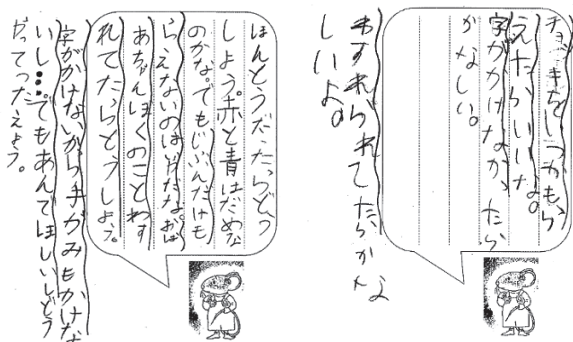 チョッキをいつかもら
えたらいいな。
字がかけなかったら
かなしい。
わすれられてたらかな
しいよ。
ほんとうだったらどう
しよう。赤と青はだめな
のかな。でもじぶんだけも
らえないのはいやだな。おば
あちゃんぼくのことわす
れてたらどうしよう。
字がかけないから手がみもかけな
いし…。でもあんでほしいしどう
やってつたえよう。